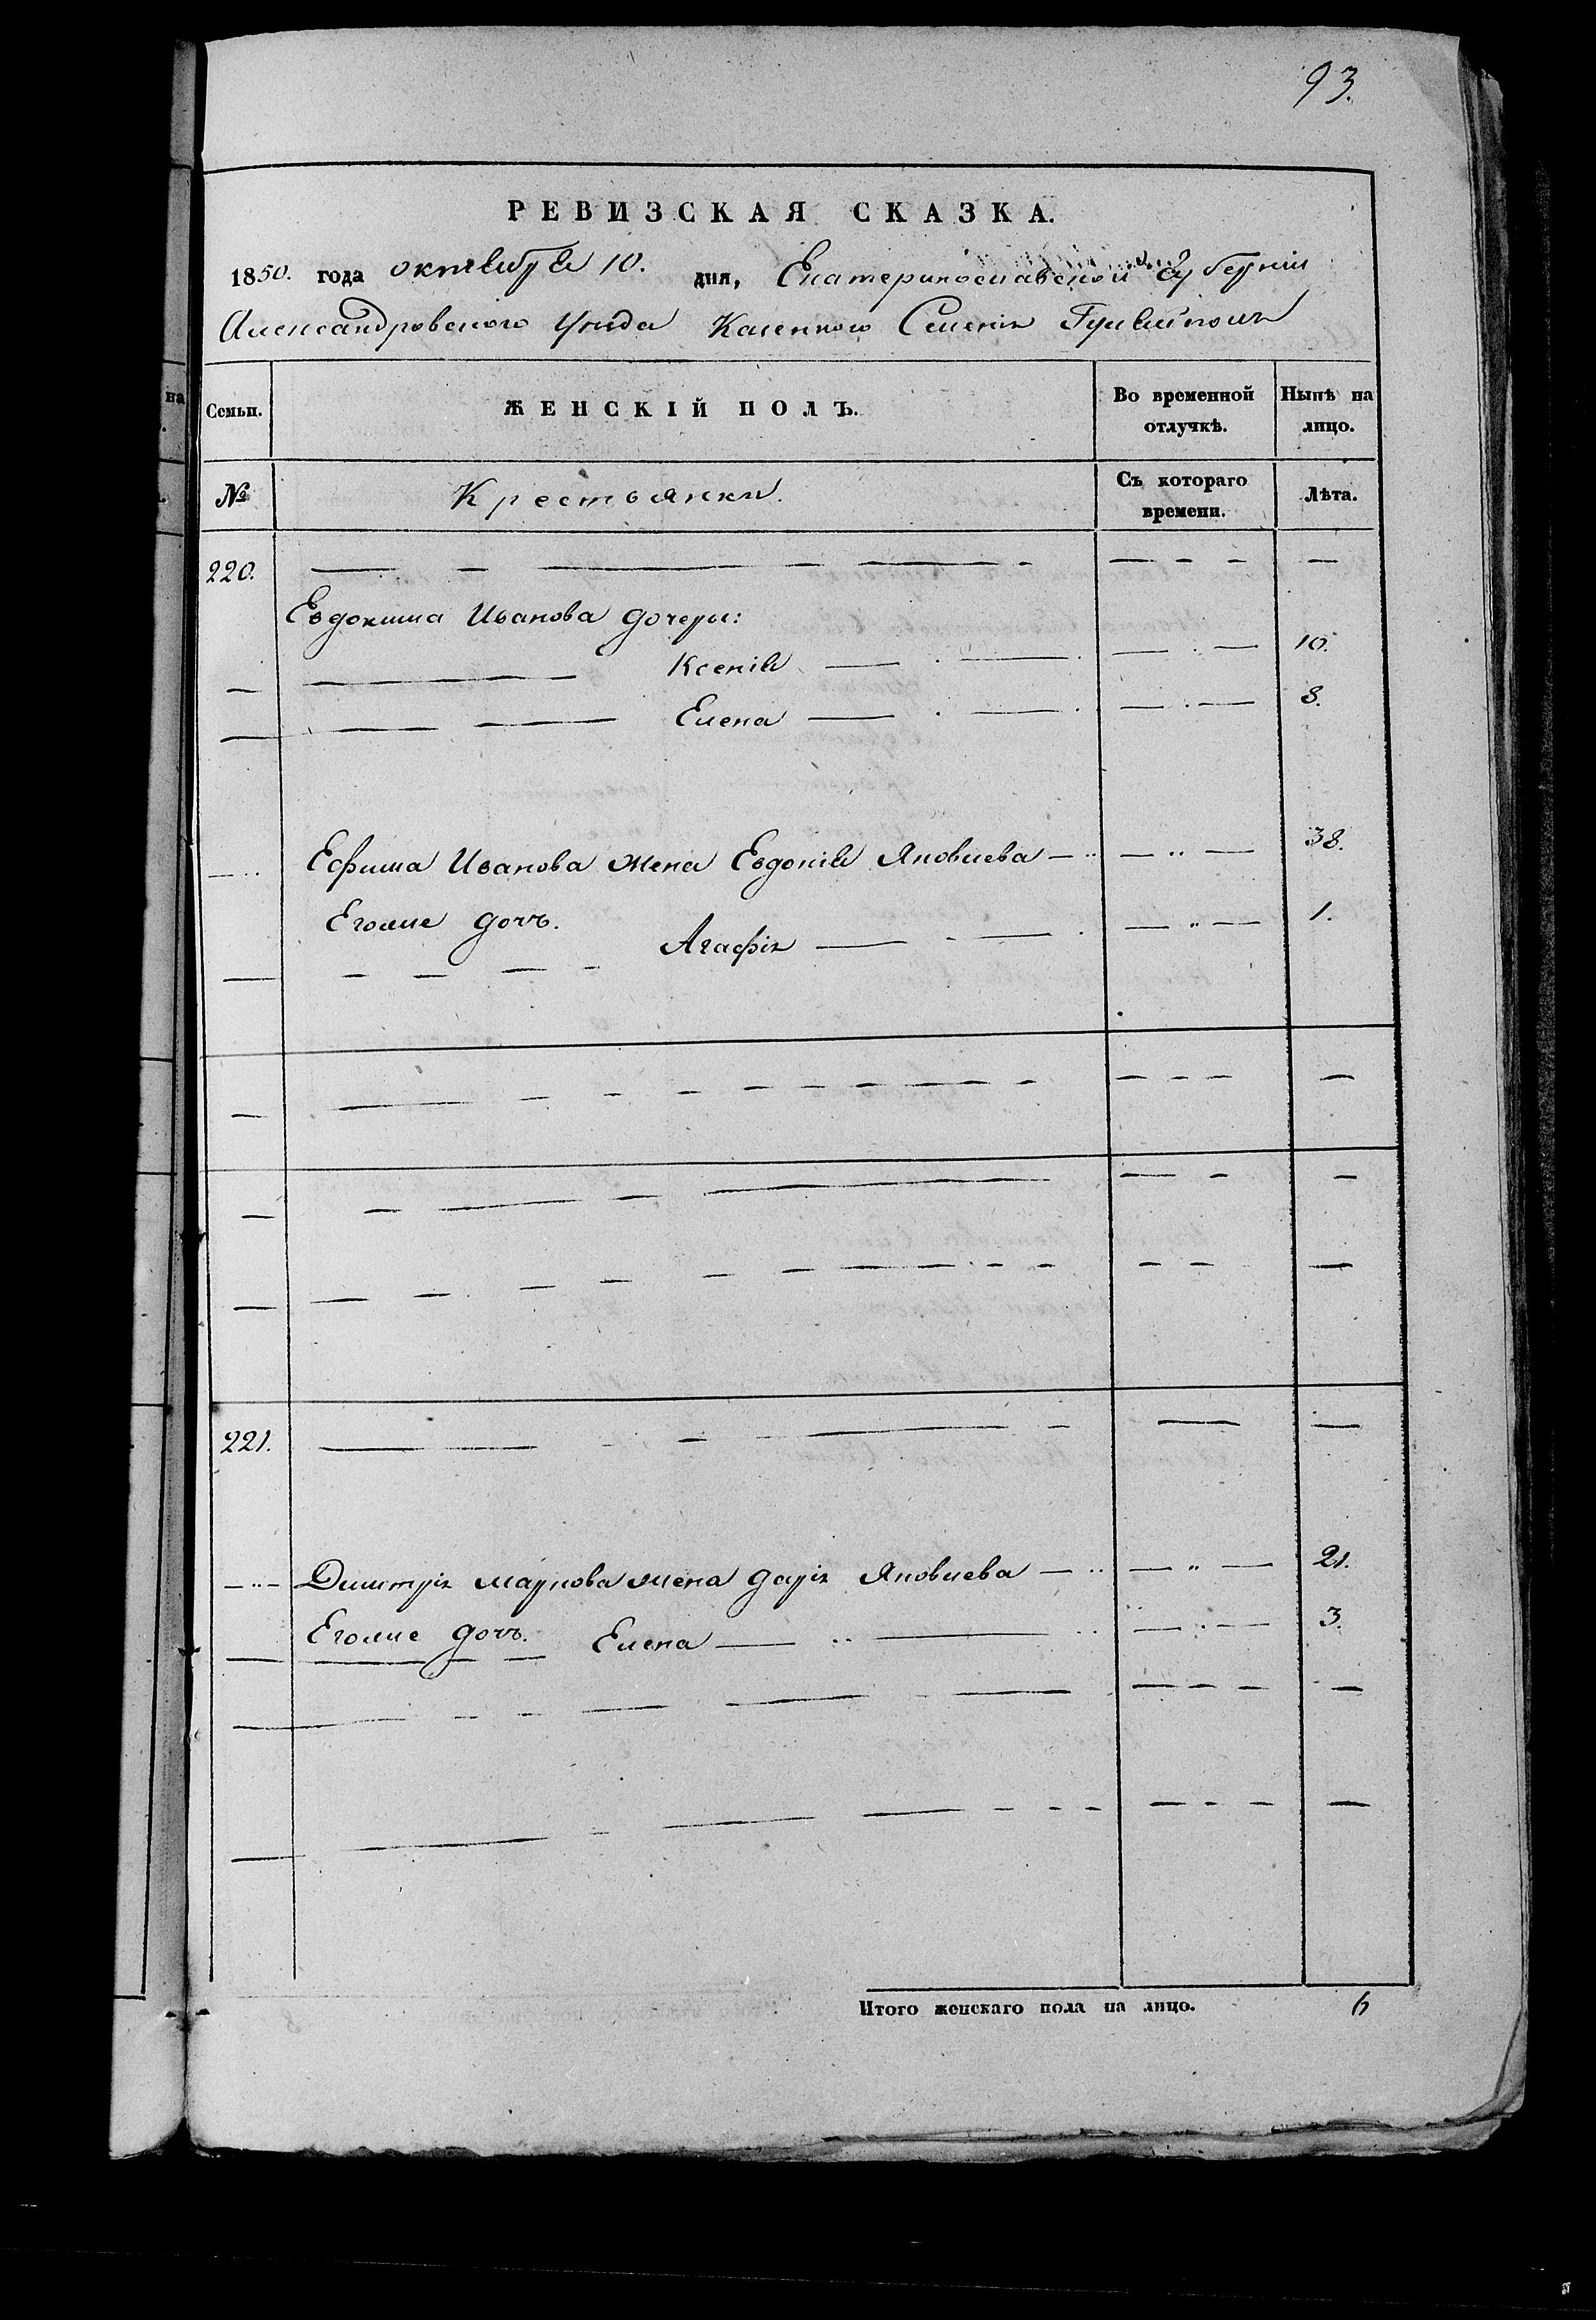 93.
РЕВИЗСКАЯ СКАЗКА.
1850. года октября 10. дня, Екатеринославской Губерніи
Александровского уезда Казенного Селенія Гуляйполя
Семьи. ЖЕНСКІЙ ПОЛЪ. Во временной отлучкѣ. Нынѣ на лицо.
№ Крестьянки. Съ котораго времени. Лѣта.
220. — — — — — — — — —
Евдокима Иванова дочери:
— — Ксенія — — — — 10.
— — — Елена — — — — 8.
— Ефима Иванова жена Евдокія Яковлева — — — 38.
Егоже дочь.
— — — — — Агафія — — — — 1.
221. — — — — — — —
— Дмитрія Маркова жена Дарія Яковлева — — — 21.
Егоже дочь. Елена — — — — 3.
Итого женскаго пола на лицо. 6